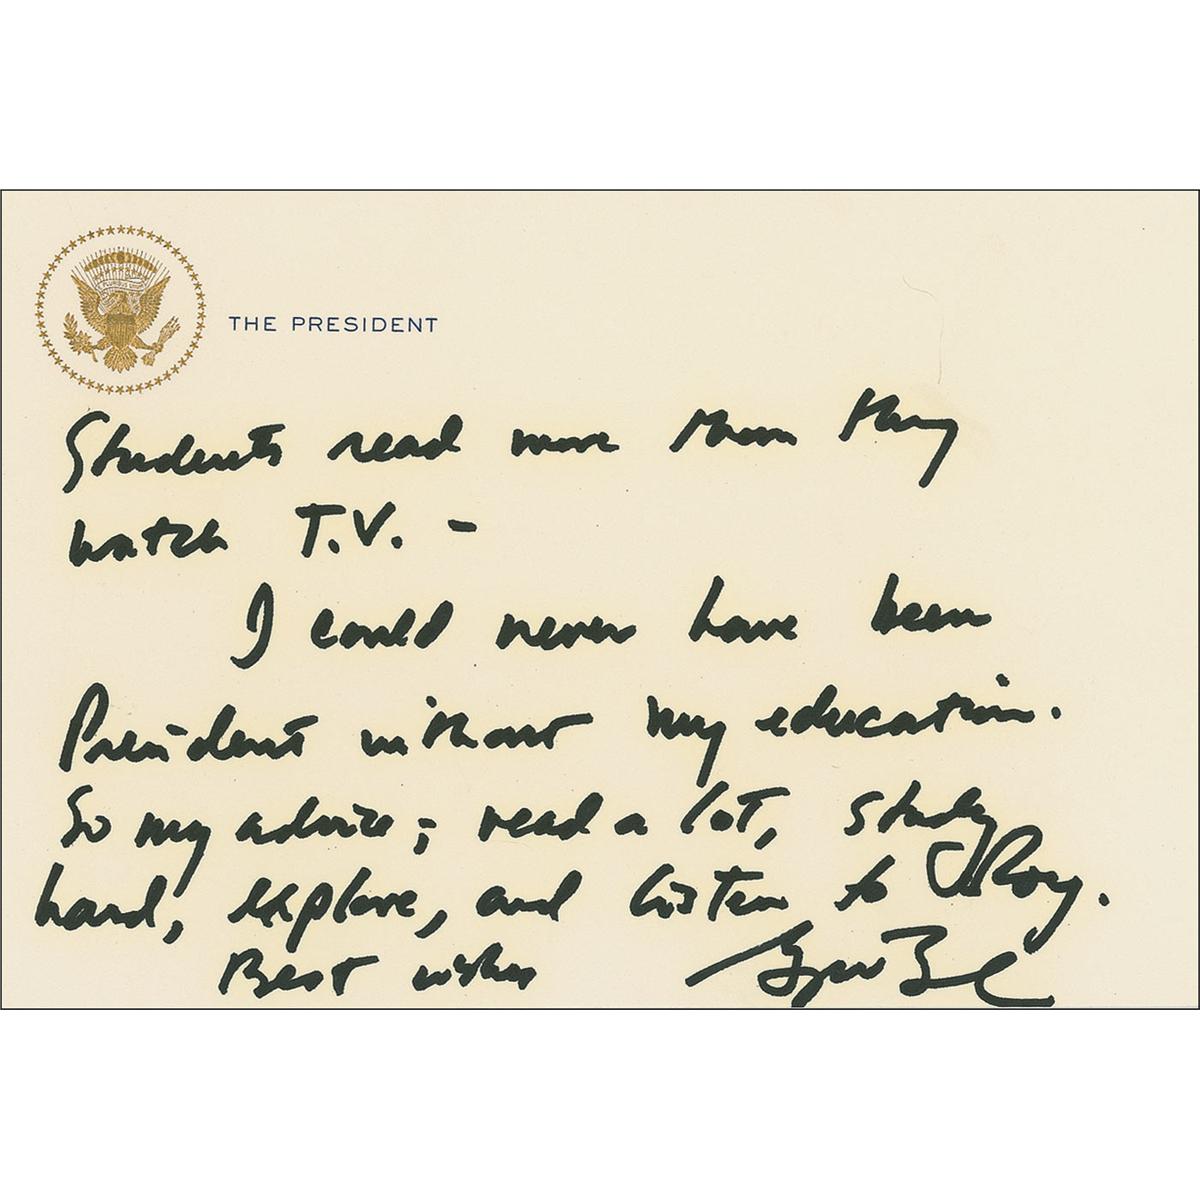 THE PRESIDENT
Students read more than they
watch T.V. -
I could never have been
President without my education.
So my advice; read a lot, study
hard, explore, and listen to Roy.
Best wishes